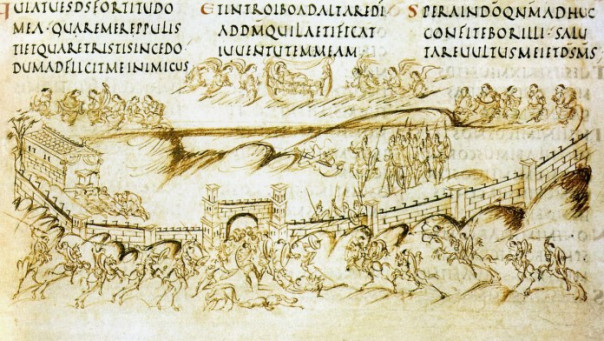 QUIATUESDSFORTITUDO
MEA·QUAREMEREPPULIS
TIETQUARETRISTISINCEDO
DUMADFLICITMEINIMICUS
ETINTROIBOADALTAREDI
ADDMQUILAETIFICAT
IUUENTUTEMMEAM
SPERAINDOQNMADHUC
CONFITEBORILLI·SALU
TAREUULTUSMEIETDSMS